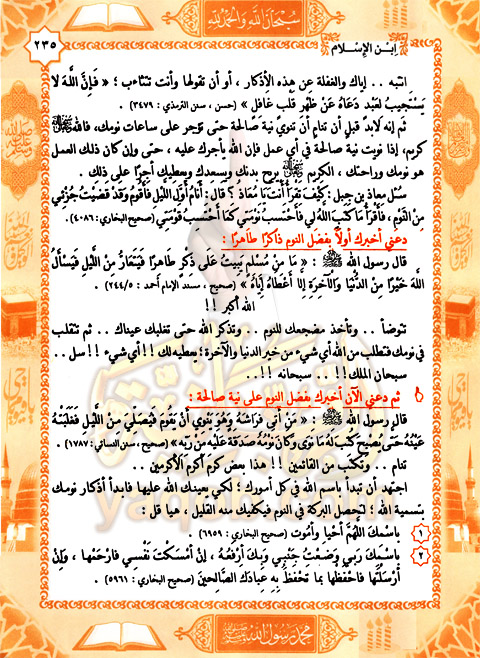 سبحان الله والحمد لله
أين الإسلام
٢٣٥
انتبه .. إياك والغفلة عن هذه الأذكار ، أو أن تقولها وأنت تتثاءب ؛ « فَإِنَّ اللَّهَ لَا
يَسْتَجِيبُ لعَبْد دَعَاهُ عَنْ ظَهْرِ قَلْب غَافل » (حسن ، سنن الترمذي : ٣٤٧٩) .
ثم إنه لابدَّ قبل أن تنام أن تنوي نية صالحة حتى تؤجر على ساعات نومك، فالله ﷻ
كريم، إذا نويت نية صالحة في أي عمل فإن الله يأجرك عليه ، حتى وإن كان ذلك العمل
هو نومك وراحتك ، الكريم ﷻ يريح بدنك ويسعدك ويعطيك أجرًا على ذلك .
سُئل معاذ بن جبل : كَيْفَ تَقْرَأُ أَنْتَ يَا مُعَاذ ؟ قال : أَنَامُ أَوَّلَ اللَّيْلِ فَأَقُومُ وَقَدْ قَضَيْتُ جُزْئِي
مِنْ النَّوْمِ ، فَأَقْرَأُ مَا كَتَبَ اللَّهُ لِي فَأَحْتَسبُ نَوْمَتِي كَمَا أَحْتَسبُ قَوْمَتِي (صحيح البخاري : ٤٠٨٦) .
دعني أخبرك أولاً بفضل النوم ذاكرًا طاهرًا :
قال رسول الله ﷺ : « مَا مِنْ مُسْلِمٍ يَبِيتُ عَلَى ذِكْرٍ طَاهِرًا فَيَتَعَارُّ مِنْ اللَّيْلِ فَيَسْأَلُ
اللَّهَ خَيْرًا مِنْ الدُّنْيَا وَالْآخِرَةِ إِلَّا أَعْطَاهُ إِيَّاهُ » (صحيح ، مسند الإمام أحمد : ٢٤٤/٥) .
الله أكبر !!
تتوضأ .. وتأخذ مضجعك للنوم .. وتذكر الله حتى تغلبك عيناك .. ثم تتقلب
في نومك فتطلب من الله أي شيء من خير الدنيا والآخرة؛ يعطيه لك !! أي شيء !! سل ..
سبحان الملك!! .. سبحانه ..!!
ثم دعني الآن أخبرك بفضل النوم على نية صالحة :
قال رسول الله ﷺ : « مَنْ أَتَى فِرَاشَهُ وَهُوَ يَنْوِي أَنْ يَقُومَ فَيُصَلِّيَ مِنْ اللَّيْلِ فَغَلَبَتْهُ
عَيْنُهُ حَتَّى يُصْبِحَ كُتِبَ لَهُ مَا نَوَى وَكَانَ نَوْمُهُ صَدَقَةً عَلَيْهِ مِنْ رَبِّهِ » (صحيح، سنن النسائي : ١٧٨٧) .
تنام .. وتكتب من القائمين !! هذا بعض كرم أكرم الأكرمين ..
اجتهد أن تبدأ باسم الله في كل أمورك ؛ لكي يعينك الله عليها فابدأ أذكار نومك
بتسمية الله ؛ لتحصل البركة في النوم فيكفيك منه القليل ، هيا قل :
١ باسْمكَ اللَّهُمَّ أَحْيَا وَأَمُوت (صحيح البخاري : ٦٩٥٩) .
٢ باسْمِكَ رَبِّي وَضَعْتُ جَنْبِي وَبِكَ أَرْفَعُهُ ، إِنْ أَمْسَكْتَ نَفْسِي فَارْحَمْهَا ، وَإِنْ
أَرْسَلْتَهَا فَاحْفَظْهَا بِمَا تَحْفَظُ بِهِ عِبَادَكَ الصَّالِحِينَ (صحيح البخاري : ٥٩٦١) .
محمد رسول الله ﷺ